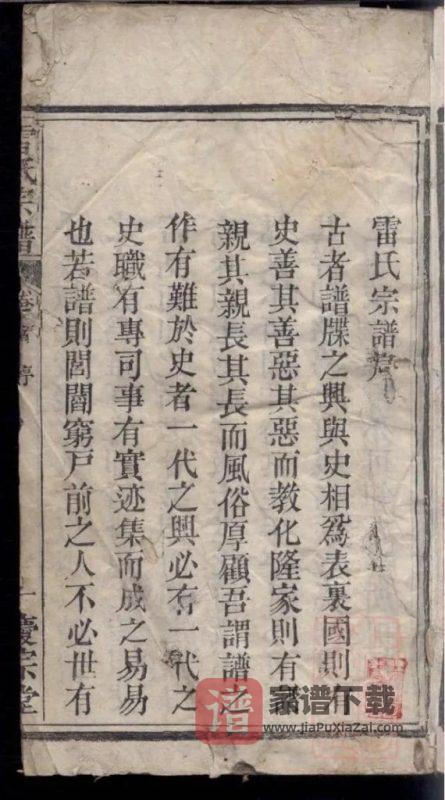 雷氏宗譜序
古者譜牒之興與史相為表裏國則有
史善其善惡其惡而教化隆家則有譜
親其親長其長而風俗厚顧吾謂譜之
作有難於史者一代之興必有一代之
史職有專司事有實迹集而成之易易
也若譜則閭閻窮戶前之人不必世有
氏宗譜
卷首 序
一 慶宗堂
譜
家谱下载
www.jiaPuXiaZai.com